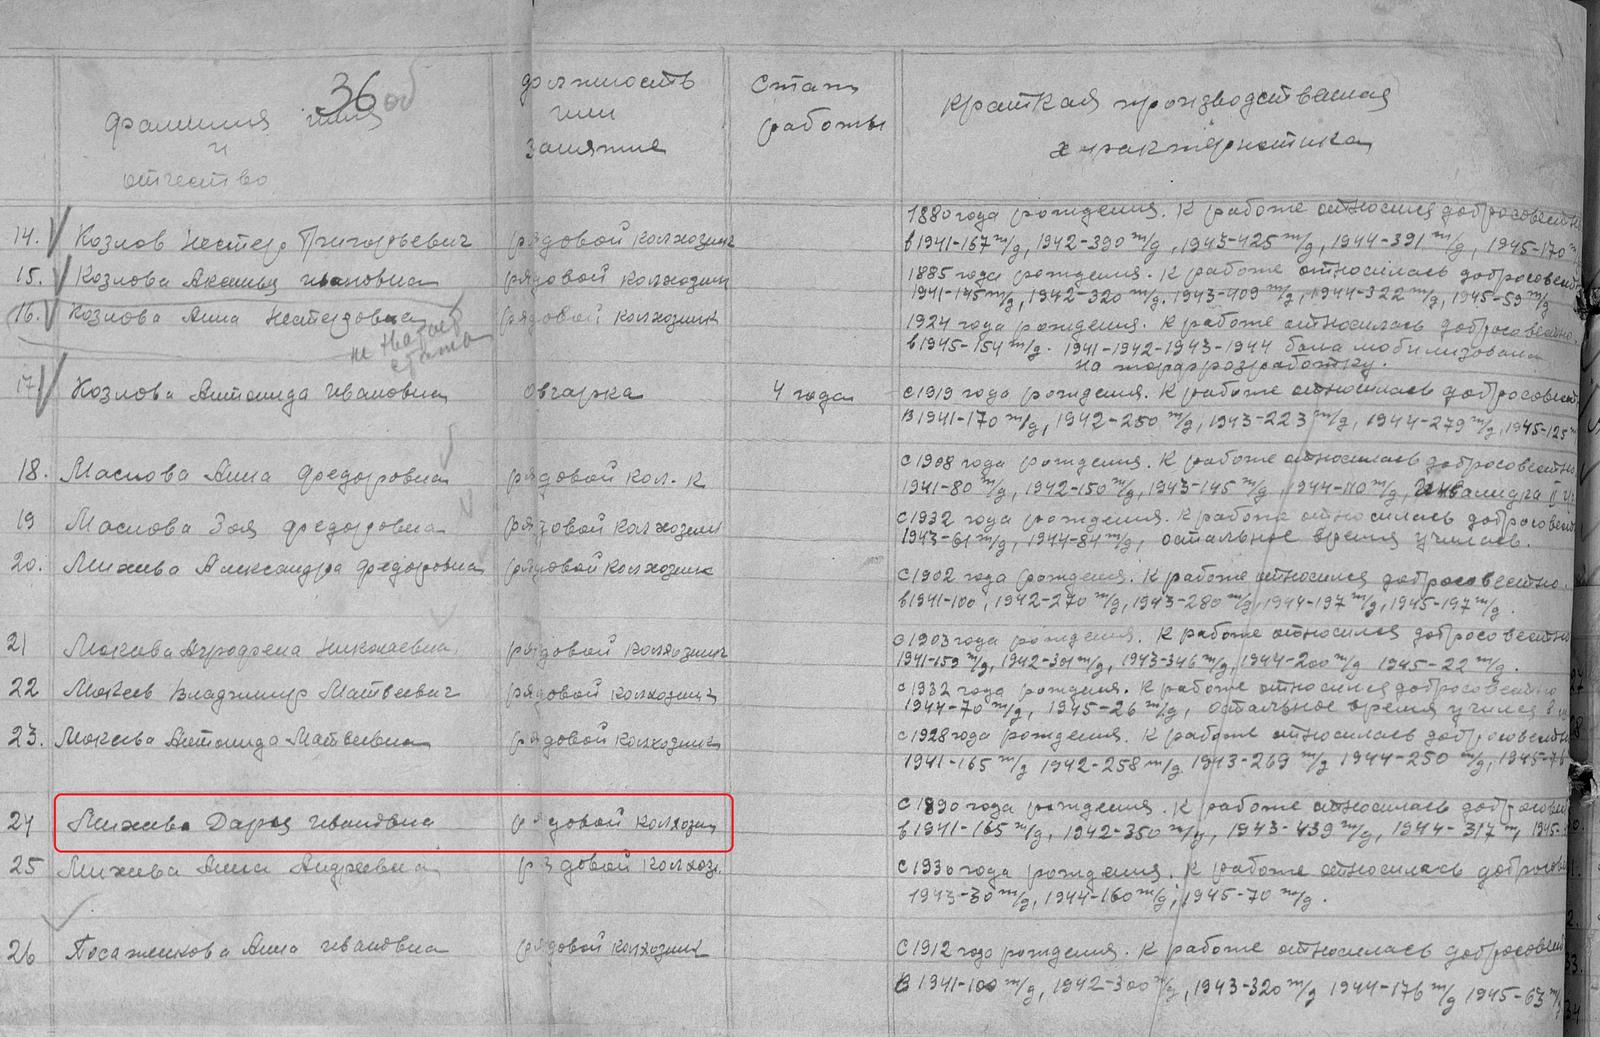 36 об
фамилия имя
и
отчество
должность
или
занятие
стаж
работы
краткая производственная
характеристика
14. Козлов Нестер Григорьевич рядовой колхозник 1880 года рождения. К работе относился добросовестн
в 1941-167 т/д, 1942-390 т/д, 1943-425 т/д, 1944-391 т/д, 1945-170 т
15. Козлова Аксинья Ивановна рядовой колхозник 1885 года рождения. К работе относилась добросовестн
1941-145 т/д, 1942-320 т/д. 1943-409 т/д, 1944-322 т/д, 1945-59 т/д
16. Козлова Анна Нестеровна рядовой колхозник 1924 года рождения. К работе относилась добросовестно.
не
стажа
в 1945-154 т/д. 1941-1942-1943-1944 была мобилизована
на торфразработку.
17 Козлова Антонида Ивановна овчарка 4 года с 1919 года рождения. К работе относилась добросовест
В 1941-170 т/д, 1942-250 т/д, 1943-223 т/д, 1944-279 т/д, 1945-125 т
18. Маслова Анна Федоровна рядовой кол-к с 1908 года рождения. К работе относилась добросовестно
1941-80 т/д, 1942-150 т/д, 1943-145 т/д, 1944-110 т/д, Инвалидка II гр
19 Маслова Зоя Федоровна рядовой колхозник с 1932 года рождения. К работе относилась добросовестн
1943-61 т/д, 1944-84 т/д, остальное время училась.
20. Михева Александра Федоровна рядовой колхозник с 1902 года рождения. К работе относился добросовестно.
в 1941-100, 1942-270 т/д, 1943-280 т/д, 1944-197 т/д, 1945-197 т/д.
21 Мокева Агрофена Николаевна рядовой колхозник с 1903 года рождения. К работе относился добросовестно
1941-159 т/д, 1942-301 т/д, 1943-346 т/д, 1944-200 т/д 1945-22 т/д.
22 Мокеев Владимир Матвеевич рядовой колхозник с 1932 года рождения. К работе относился добросовестно
1944-70 т/д, 1945-26 т/д, остальное время учился в
23. Мокева Антонида Матвеевна рядовой колхозник с 1928 года рождения. К работе относилась добросовестн
1941-165 т/д 1942-258 т/д 1943-269 т/д 1944-250 т/д, 1945-76
24 Михева Дарья Ивановна рядовой колхозник с 1890 года рождения. К работе относилась добросовест
в 1941-165 т/д, 1942-350 т/д, 1943-439 т/д, 1944-317 т, 1945-
25 Михева Анна Андреевна рядовой колхоз. с 1930 года рождения. К работе относилась добросовес
1943-30 т/д, 1944-160 т/д, 1945-70 т/д.
26 Посаженкова Анна Ивановна рядовой колхозник с 1912 года рождения. К работе относилась добросовест
В 1941-100 т/д, 1942-300 т/д, 1943-320 т/д 1944-176 т/д 1945-63 т/д